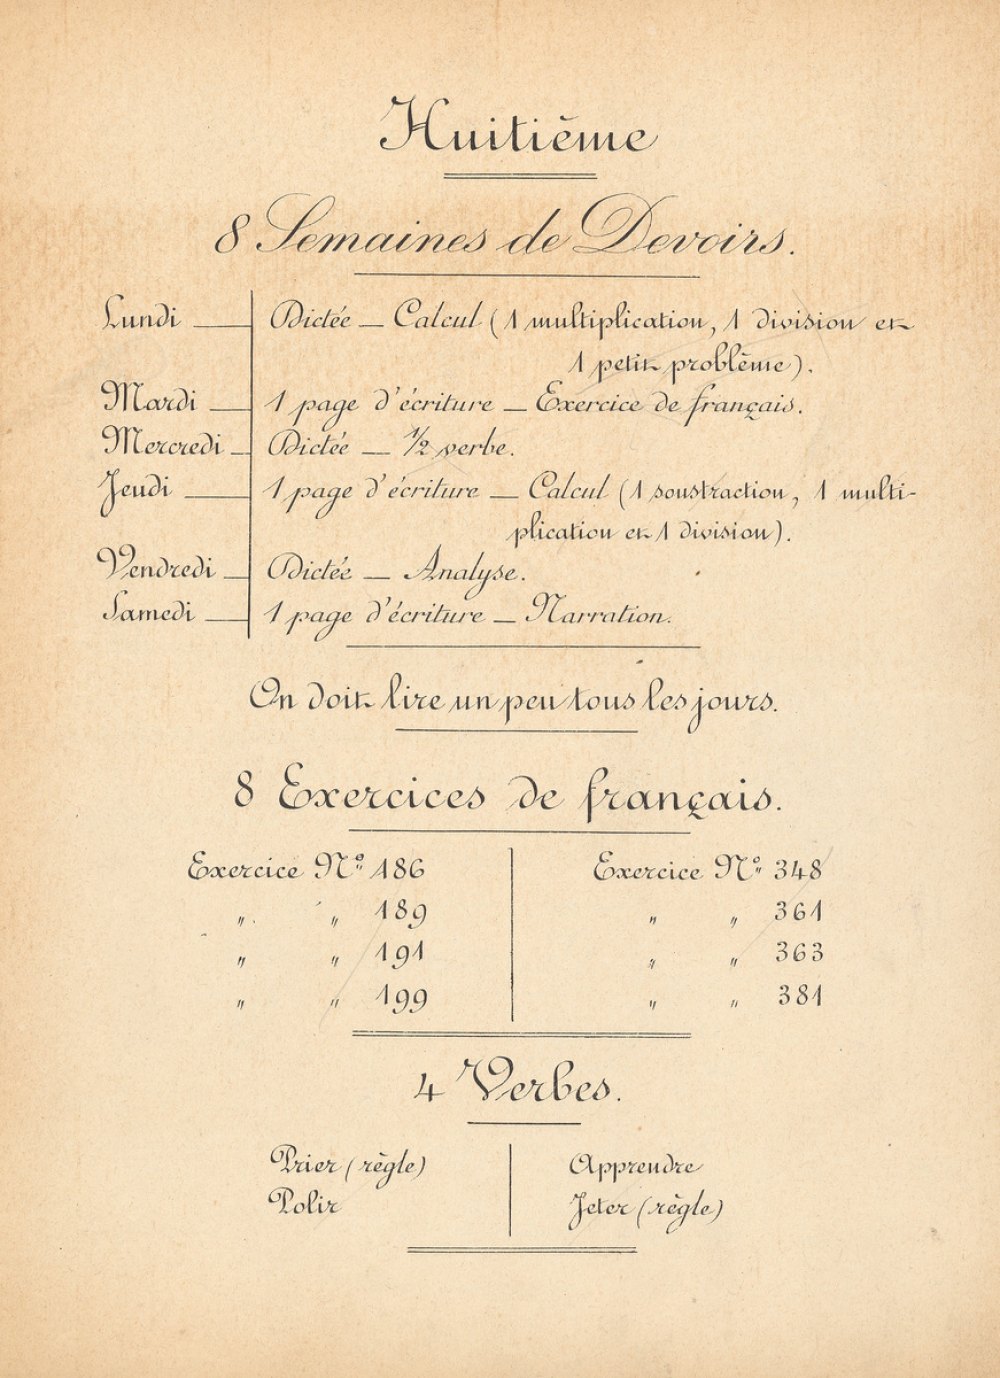 Huitième
8 Semaines de Devoirs.
Lundi — Dictée — Calcul (1 multiplication, 1 division et
1 petit problème).
Mardi — 1 page d'écriture — Exercice de français.
Mercredi — Dictée — 1/2 verbe.
Jeudi — 1 page d'écriture — Calcul (1 soustraction, 1 multi-
plication et 1 division).
Vendredi — Dictée — Analyse.
Samedi — 1 page d'écriture — Narration.
On doit lire un peu tous les jours.
8 Exercices de français.
Exercice N° 186
" " 189
" " 191
" " 199
Exercice N° 348
" " 361
" " 363
" " 381
4 Verbes.
Prier (règle)
Polir
Apprendre
Jeter (règle)